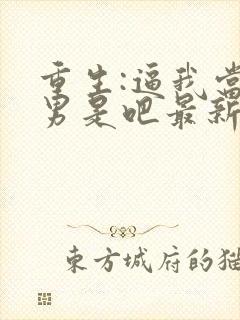 重生:逼我当
男是吧最新
东方城府的猫